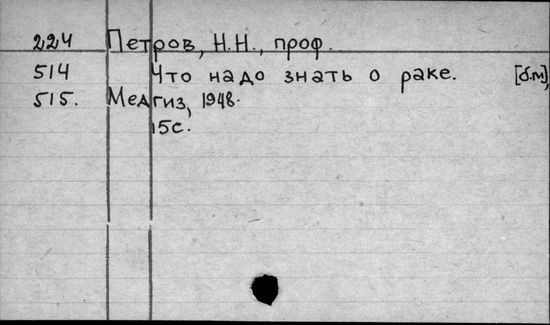 224 Петров, Н.Н., проф.
514 Что надо знать о раке. [б.м],
515. Медгиз, 1948.
15с.